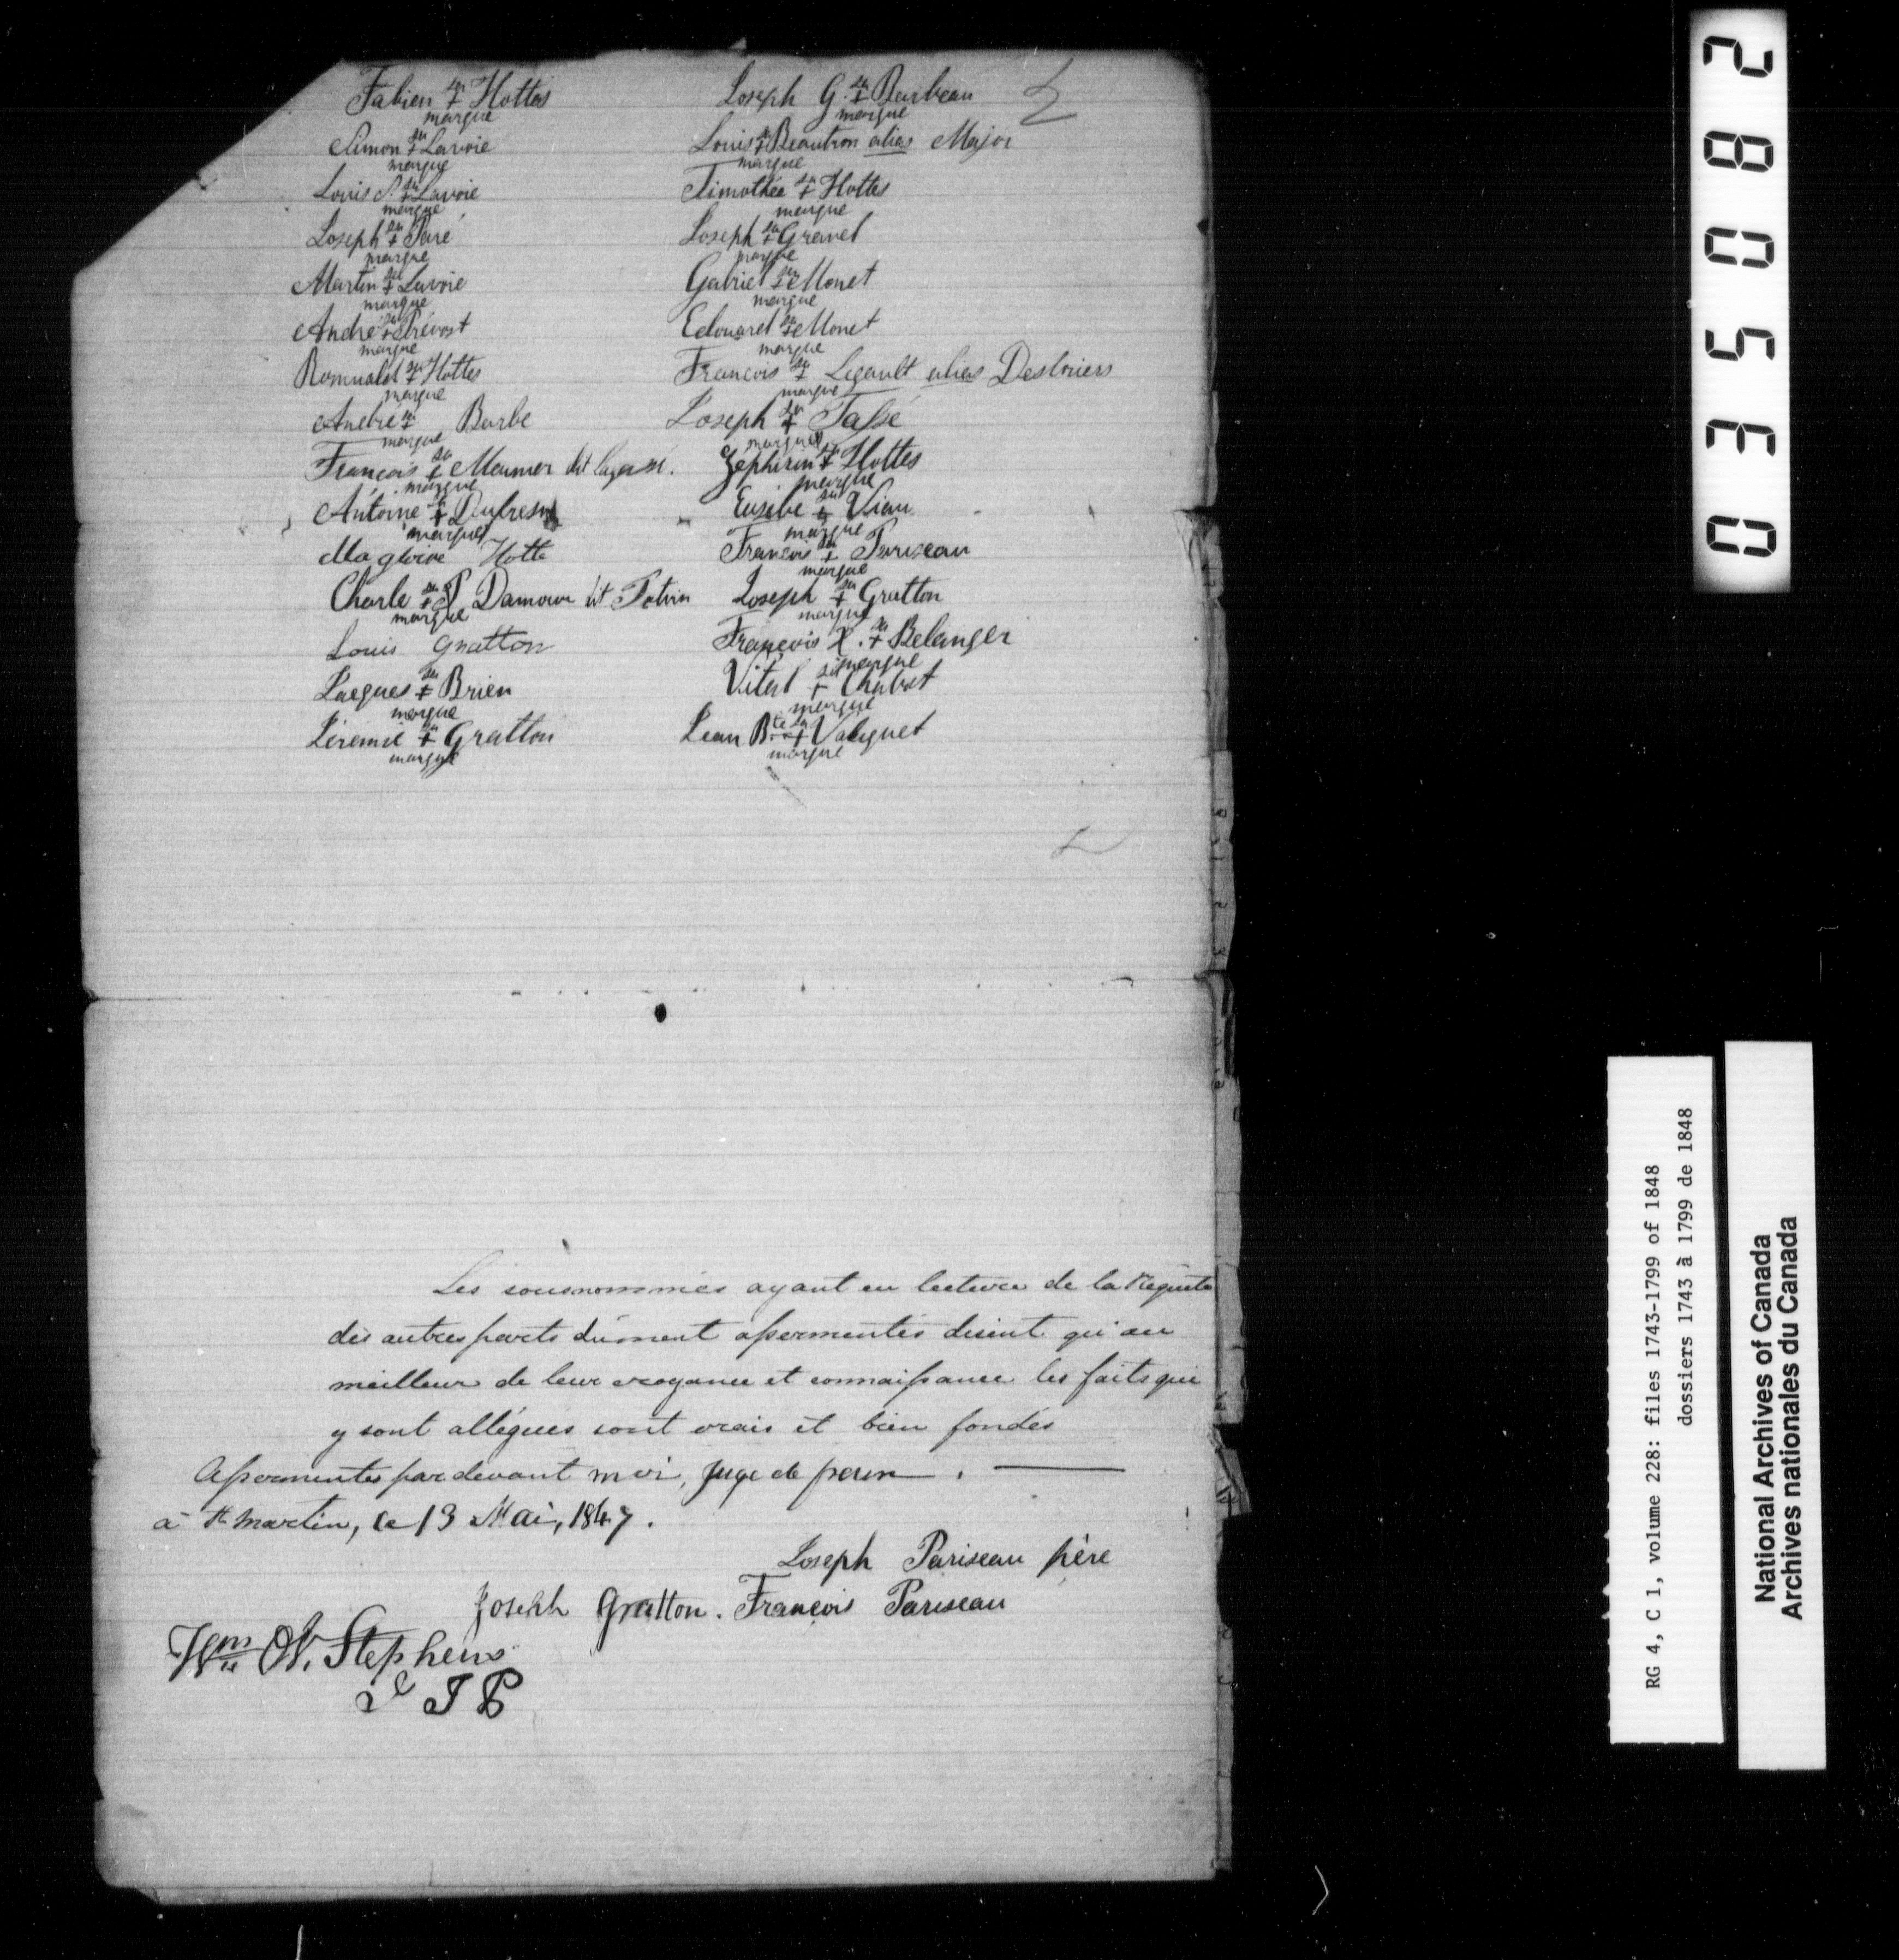 Fabien sa + Hottes
marque
Simon sa + Lavoie
marque
Louis sa + Lavoie
marque
Joseph sa + Paré
marque
Martin sa + Lavoie
marque
André sa + Prévost
marque
Romuald sa + Hottes
marque
André sa + Barbe
marque
François sa + Meunier dit
marque
Antoine sa + Dufresne
marque
Magloire Hotte
Charle sa + Damour dit Potvin
marque
Louis Gratton
Jacques sa + Brien
marque
Jéremie sa + Gratton
marque
Joseph G. sa + Barbeau
marque
Louis sa + Beautron alias Major
marque
Timothée sa + Hottes
marque
Joseph sa + Gravel
marque
Gabriel sa + Monet
marque
Edouard sa + Monet
marque
François sa + Legault alias Desloriers
marque
Joseph sa + Tassé
marque
Zéphirin sa + Hottes
marque
Eusèbe sa + Viau
marque
François sa + Pariseau
marque
Joseph sa + Gratton
marque
François X. sa + Belanger
marque
Vital sa + Chabot
marque
Jean Bte sa + Valiquet
marque
Les sousnommés ayant eu lecture de la Requête
des autres parts dûment assermentés disent qu'au
meilleur de leur croyance et connaissance les faits qui
y sont allégués sont vrais et bien fondés
Assermentés par devant moi, Juge de paix
à St Martin, ce 13 Mai, 1847.
Joseph Pariseau père
Joseph Gratton. François Pariseau
Wm W. Stephens
J P
035082
RG 4, C 1, volume 228: files 1743-1799 of 1848
dossiers 1743 à 1799 de 1848
National Archives of Canada
Archives nationales du Canada